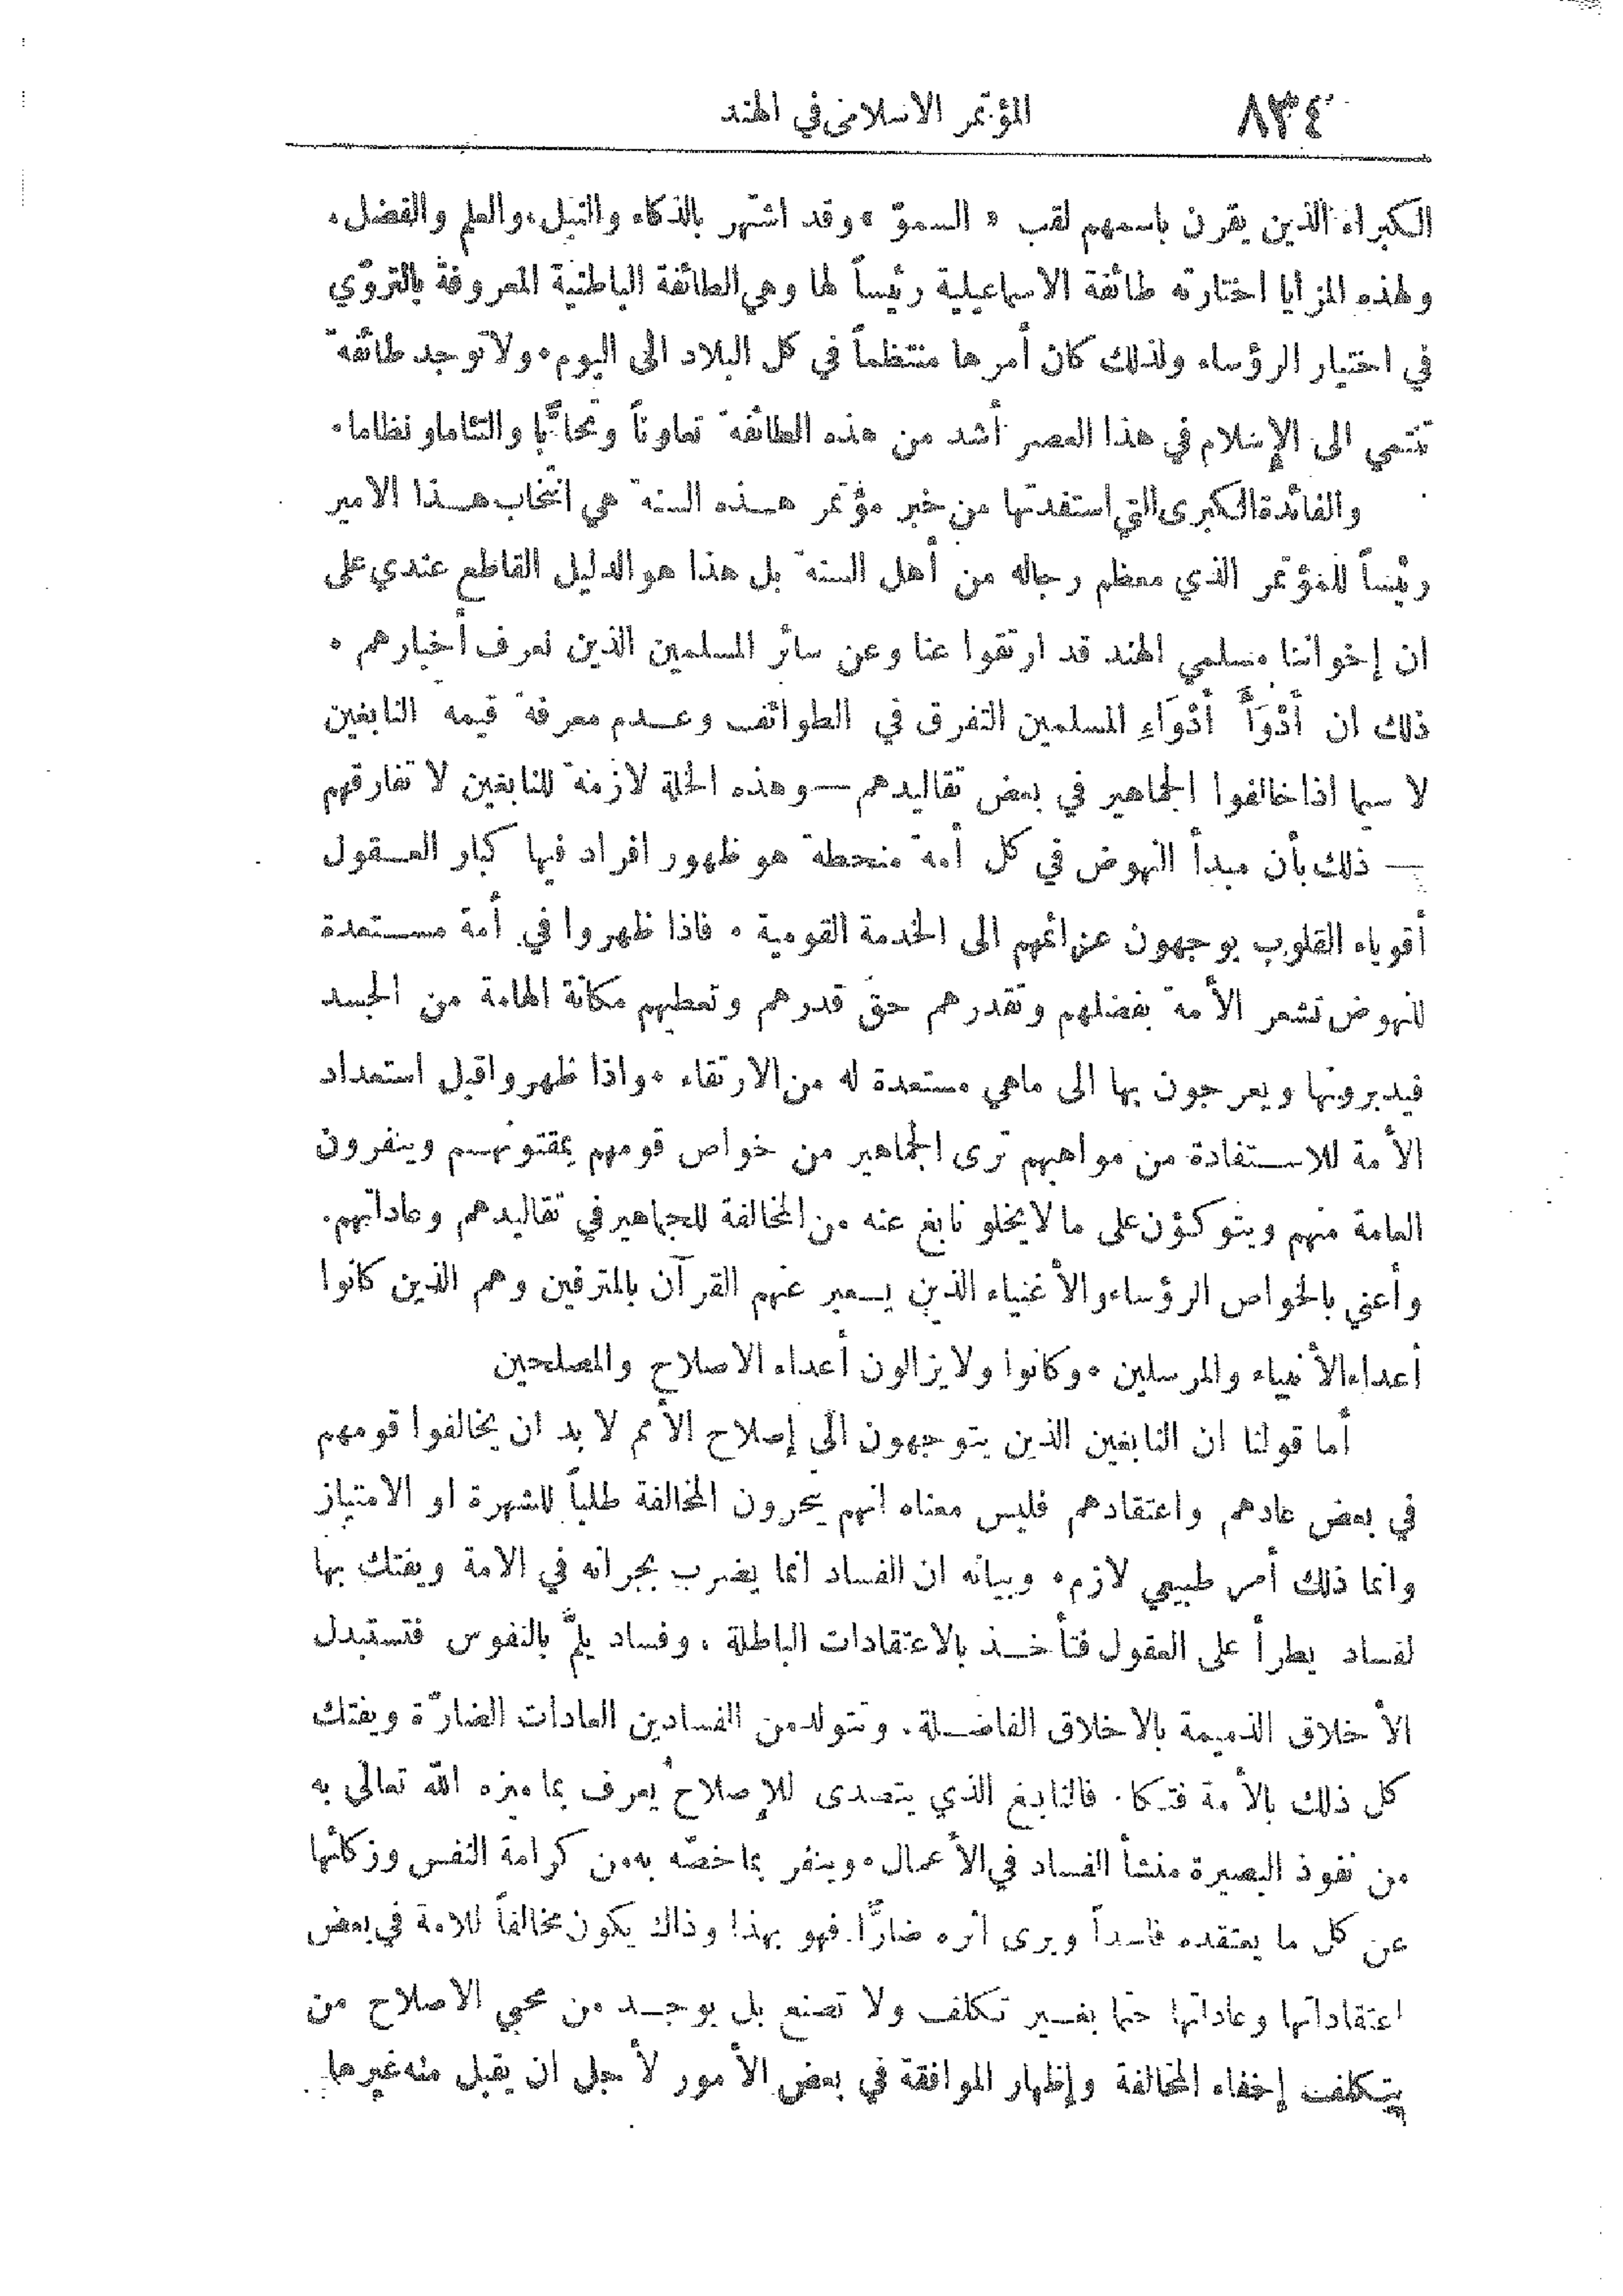 ٨٣٤ المؤتمر الاسلامي في الهند
الكبراء الذين يقرن باسمهم لقب « السموّ » وقد اشتهر بالذكاء والنبل، والعلم والفضل.
ولهذه المزايا اختارته طائفة الاسماعيلية رئيساً لها وهي الطائفة الباطنية المعروفة بالتروّي
في اختيار الرؤساء ولذلك كان أمرها منتظماً في كل البلاد الى اليوم. ولا توجد طائفة
تنتمي الى الإسلام في هذا العصر أشد من هذه الطائفة تعاوناً وتحابًّا والتئاما ونظاما.
والفائدة الكبرى التي استفدتها من خبر مؤتمر هـذه السنة هي انتخاب هـذا الامير
رئيساً للمؤتمر الذي معظم رجاله من أهل السنة بل هذا هو الدليل القاطع عندي على
ان إخواننا مسلمي الهند قد ارتقوا عنا وعن سائر المسلمين الذين نعرف أخبارهم .
ذلك ان أَدْوَأَ أَدْوَاءِ المسلمين التفرق في الطوائف وعـدم معرفة قيمة النابغين
لا سيما اذا خالفوا الجماهير في بعض تقاليدهم — وهذه الخلة لازمة للنابغين لا تفارقهم
— ذلك بأن مبدأ النهوض في كل أمة منحطة هو ظهور افراد فيها كبار العـقول
أقوياء القلوب يوجهون عزائمهم الى الخدمة القومية . فاذا ظهروا في أمة مسـتعدة
للنهوض تشعر الأمة بفضلهم وتقدرهم حق قدرهم وتعطيهم مكانة الهامة من الجسد
فيدبرونها ويعرجون بها الى ماهي مستعدة له من الارتقاء . واذا ظهروا قبل استعداد
الأمة للاسـتفادة من مواهبهم ترى الجماهير من خواص قومهم يمقتونهـم وينفرون
العامة منهم ويتوكؤن على ما لا يخلو نابغ عنه من المخالفة للجماهير في تقاليدهم وعاداتهم.
وأعني بالخواص الرؤساء والأغنياء الذين يـعبر عنهم القرآن بالمترفين وهم الذين كانوا
أعداء الأنبياء والمرسلين . وكانوا ولا يزالون أعداء الاصلاح والمصلحين
أما قولنا ان النابغين الذين يتوجهون الى إصلاح الأمم لا بد ان يخالفوا قومهم
في بعض عادهم واعتقادهم فليس معناه انهم يتحرون المخالفة طلباً للشهرة او الامتياز
وانما ذلك أمر طبيعي لازم. وبيانه ان الفساد انما يضرب بجرانه في الامة ويفتك بها
لفساد يطرأ على العقول فتأخـذ بالاعتقادات الباطلة ، وفساد يلمّ بالنفوس فتستبدل
الأخلاق الذميمة بالاخلاق الفاضـلة. وتتولد من الفسادين العادات الضارّة ويفتك
كل ذلك بالأمة فتـكا. فالنابغ الذي يتصدى للإصلاح يعرف بما ميزه الله تعالى به
من نفوذ البصيرة منشأ الفساد في الأعمال . وينفر بما خصّه به من كرامة النفس وزكائها
عن كل ما يعتقده فاسداً ويرى اثره ضارًّا. فهو بهذا وذاك يكون مخالفاً للامة في بعض
اعتقاداتها وعاداتها حتما بغـير تكلف ولا تصنع بل يوجـد من محبي الاصلاح من
يتكلف إخفاء المخالفة وإظهار الموافقة في بعض الأمور لأجل ان يقبل منه غيرها